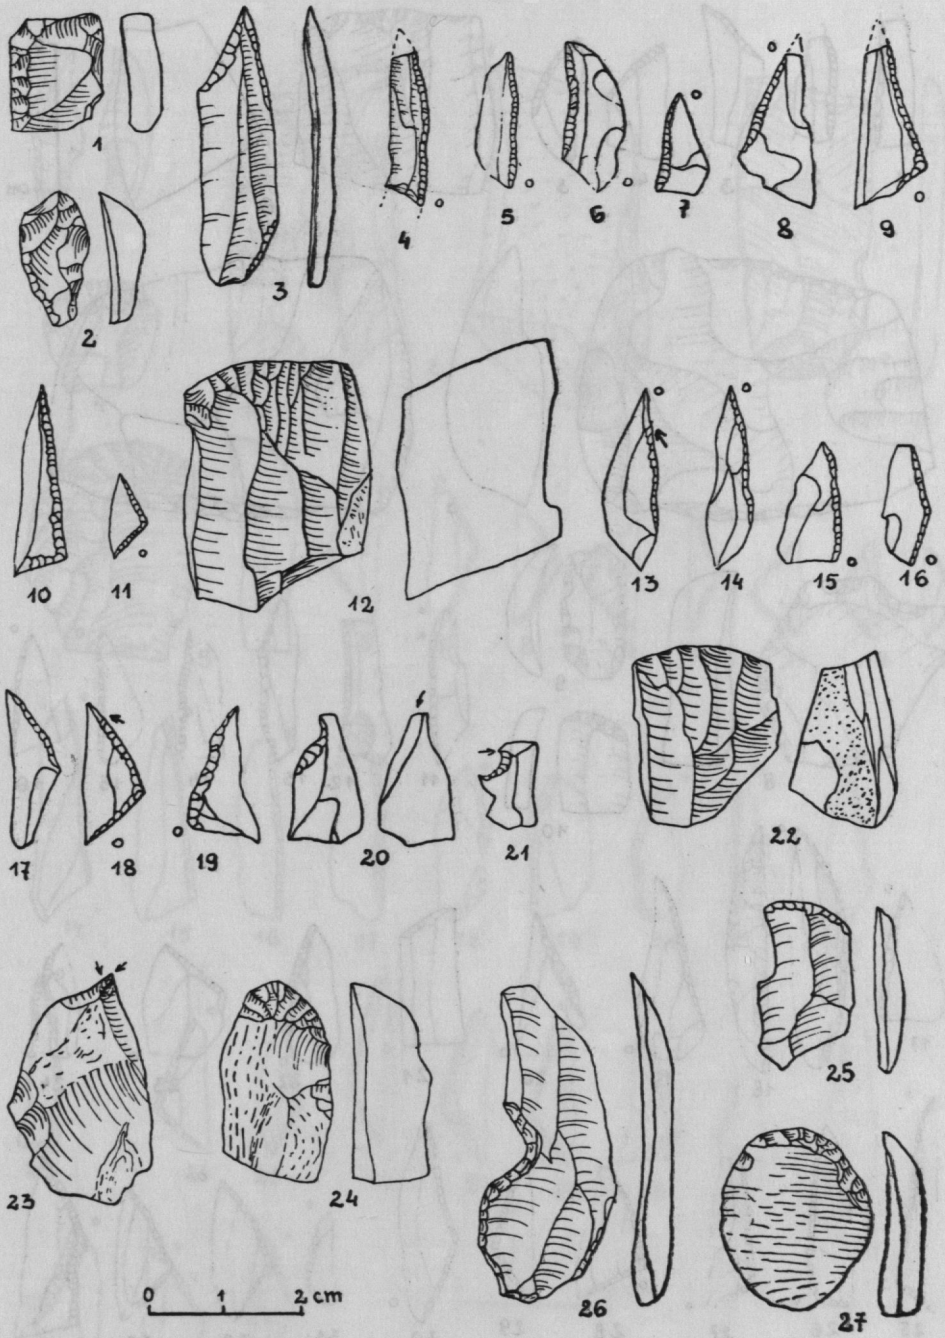 1
2
3
4
5
6
7
8
9
10
11
12
13
14
15
16
17
18
19
20
21
22
23
24
25
26
27
0 1 2 cm